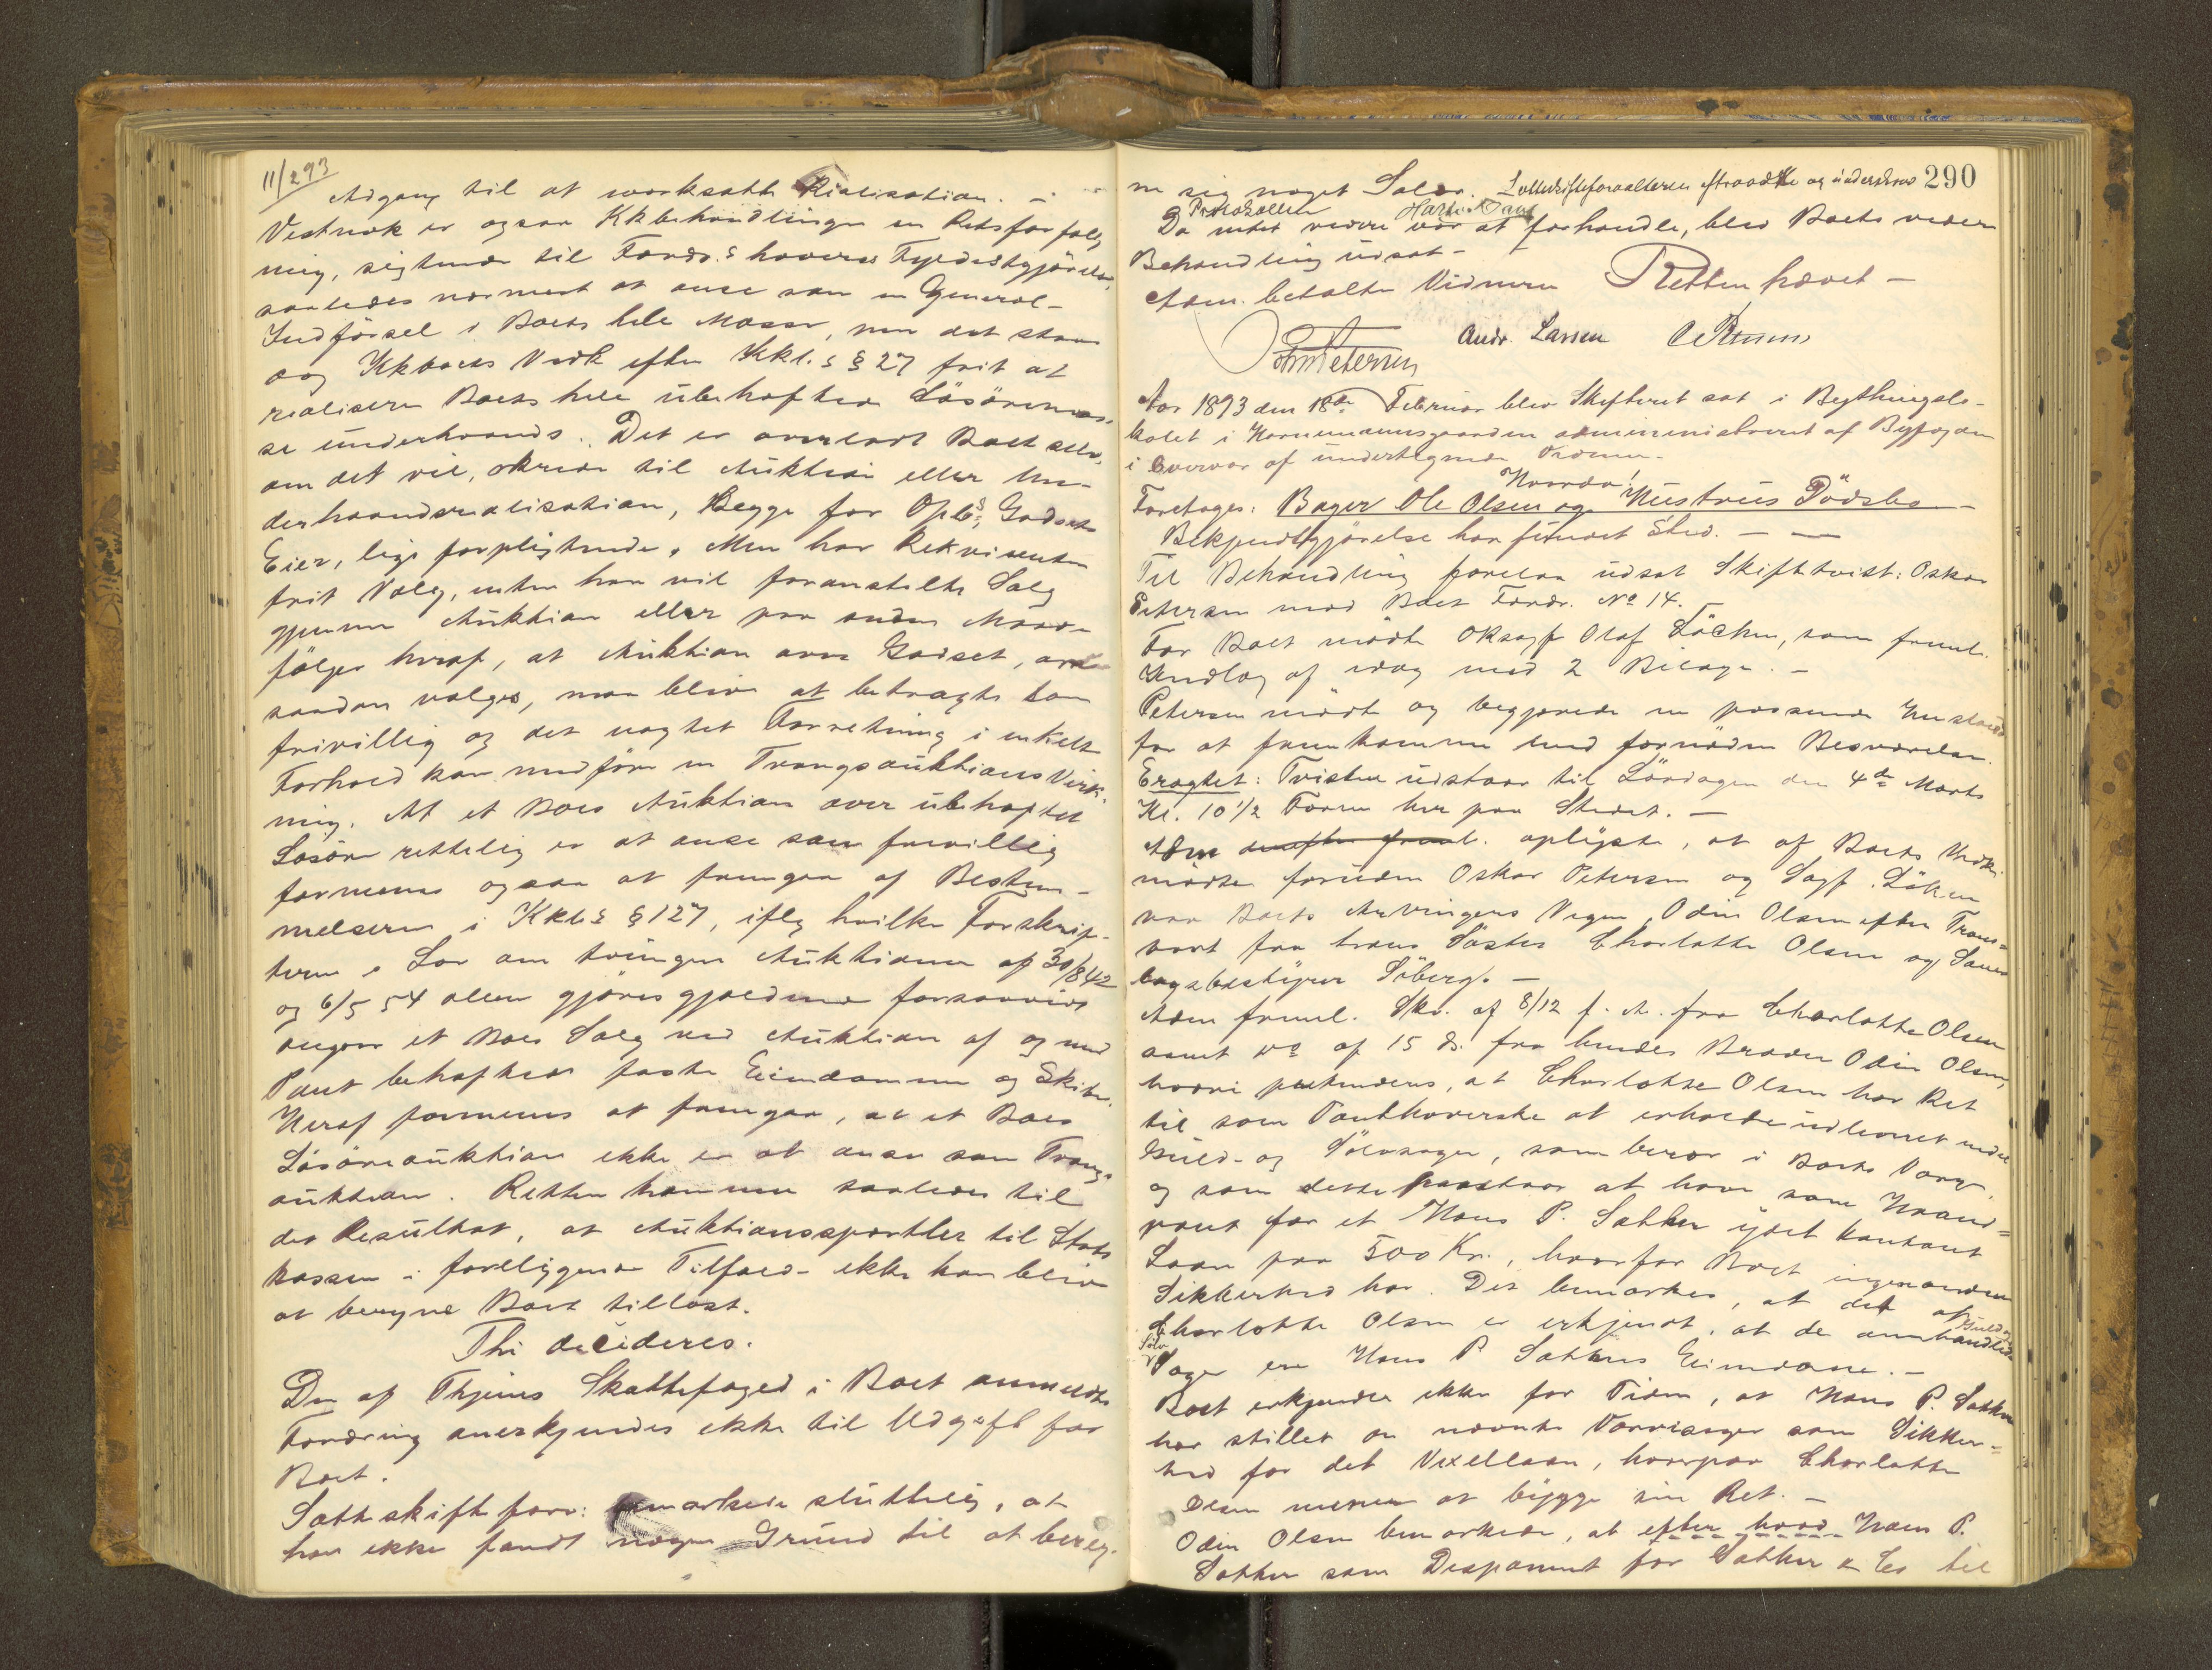 11/2 93
Adgang til at værksætte Realisation. –
Vestnok er ogsaa Kkbehandlingen en Retsforfølg
ning, sigtende til Fordr.s haveres Fyldestgjörelse,
saaledes nærmest at anse som en General-
Indförsel i Boets hele Masse, men det staar
og Kkboets Vedk efter Kkl.s § 27 frit at
realisere Boets hele ubehæftede Lösöremas-
se underhaands. Det er overladt Boet selv,
om det vil, skride til Auktion eller Un-
derhaandsrealisation, Begge for Opbs, Godsets
Eier, lige forpligtende. Men har Rekvirenten
frit Valg, enten han vil foranstalte Salg
gjennem Auktion eller paa anden Maade
fölger heraf, at Auktion over Godset,
saadan vælges, maa blive at betragte som
frivillig og det uagtet Forretning i enkelt
Forhold kan medföre en Trangsauktions Virk-
ning. At et Boes Auktion over ubehæftet
Lösöre rettelig er at anse som frivillig
formenes ogsaa at fremgaa af Bestem-
melserne i Kkl.s § 127, iflg hvilke Forskrif-
terne i Lov om tvungne Auktioner af 30/8 42
og 6/5 54 alene gjöres gjældende forsaavidt
angaar et Boes Salg ved Auktion af og med
Pant behæftede faste Eiendomme og Skibe.
Heraf formenes at fremgaa, at et Boes
Lösöreauktion ikke er at anse som Trangs-
auktion. Retten kommer saaledes til
det Resultat, at Auktionssportler til Stats
kassen i foreliggende Tilfælde ikke kan blive
at beregne Boet tillast.
Thi decideres.
Den af Thjemes Skattefoged i Boet anmeldte
Fordring anerkjendes ikke til Udgift for
Boet.
Sætteskifteforv: bemærkede sluttelig, at
han ikke fandt nogen Grund til at bereg-
290
ne sig noget Salær.
Protokollen
Da intet videre var at forhandle, blev Boets videre
Behandling udsat –
Adm. betalte Vidnerne Retten hævet –
Andr. Larsen
Petersen
Aar 1893 den 18de Februar blev Skifteret sat i Bythingslo-
kalet i Hornemannsgaarden administreret af Byfogden
i Overvær af undertegnede Vidner. –
Hvorda!
Foretoges: Bager Ole Olsen og Hustrus Dödsbo –
Bekjendtgjörelse har fundet Sted. –
Til Behandling forelaa udsat Skiftetvist: Oskar
Petersen mod Boet Fordr. No 14.
For Boet mödte Oksagf Olaf Löchen, som freml.
Indlæg af idag med 2 Bilage. –
Petersen mödte og begjærede en passende Udstand
for at fremkomme med fornöden Besvarelse.
Eragtet: Tvisten udstaar til Löverdagen den 4de Marts
Kl. 10 1/2 Form her paa Stedet. –
Adm oplyste, at af Boets Vedk.
mödte foruden Oskar Petersen og Sagf. Löken
paa Boets Arvingers Vegne, Odin Olsen efter Trans-
port fra hans Söster Charlotte Olsen og
bogsbestyrer Siberg. –
Adm freml. Skr. af 8/12 f. A. fra Charlotte Olsen
samt do af 15 ds. fra hendes Broder Odin Olsen,
hvori prætenderes, at Charlotte Olsen har Ret
til som Panthaverske at erholde udleveret endel
Guld- og Sölvsager, som beror i Boets Værge,
og som dette paastaar at have som Haand-
pant for et Hans P. Sæther ydet kontant
Laan paa 500 Kr., hvorfor Boet ingen anden
Sikkerhed har. Det bemærkes, at det af
Charlotte Olsen er erkjendt, at de omhandlede Guld og
Sölv
Sager ere Hans P. Sæthers Eiendom. –
Boet erkjender ikke for Tiden, at Hans P. Sæther
har stillet de nævnte sager som Sikker-
hed for det Vexellaan, hvorpaa Charlotte
Olsen mener at bygge sin Ret. –
Odin Olsen bemærkede, at efter hvad Hans P.
Sæther som Disponent for Sæther & Co til